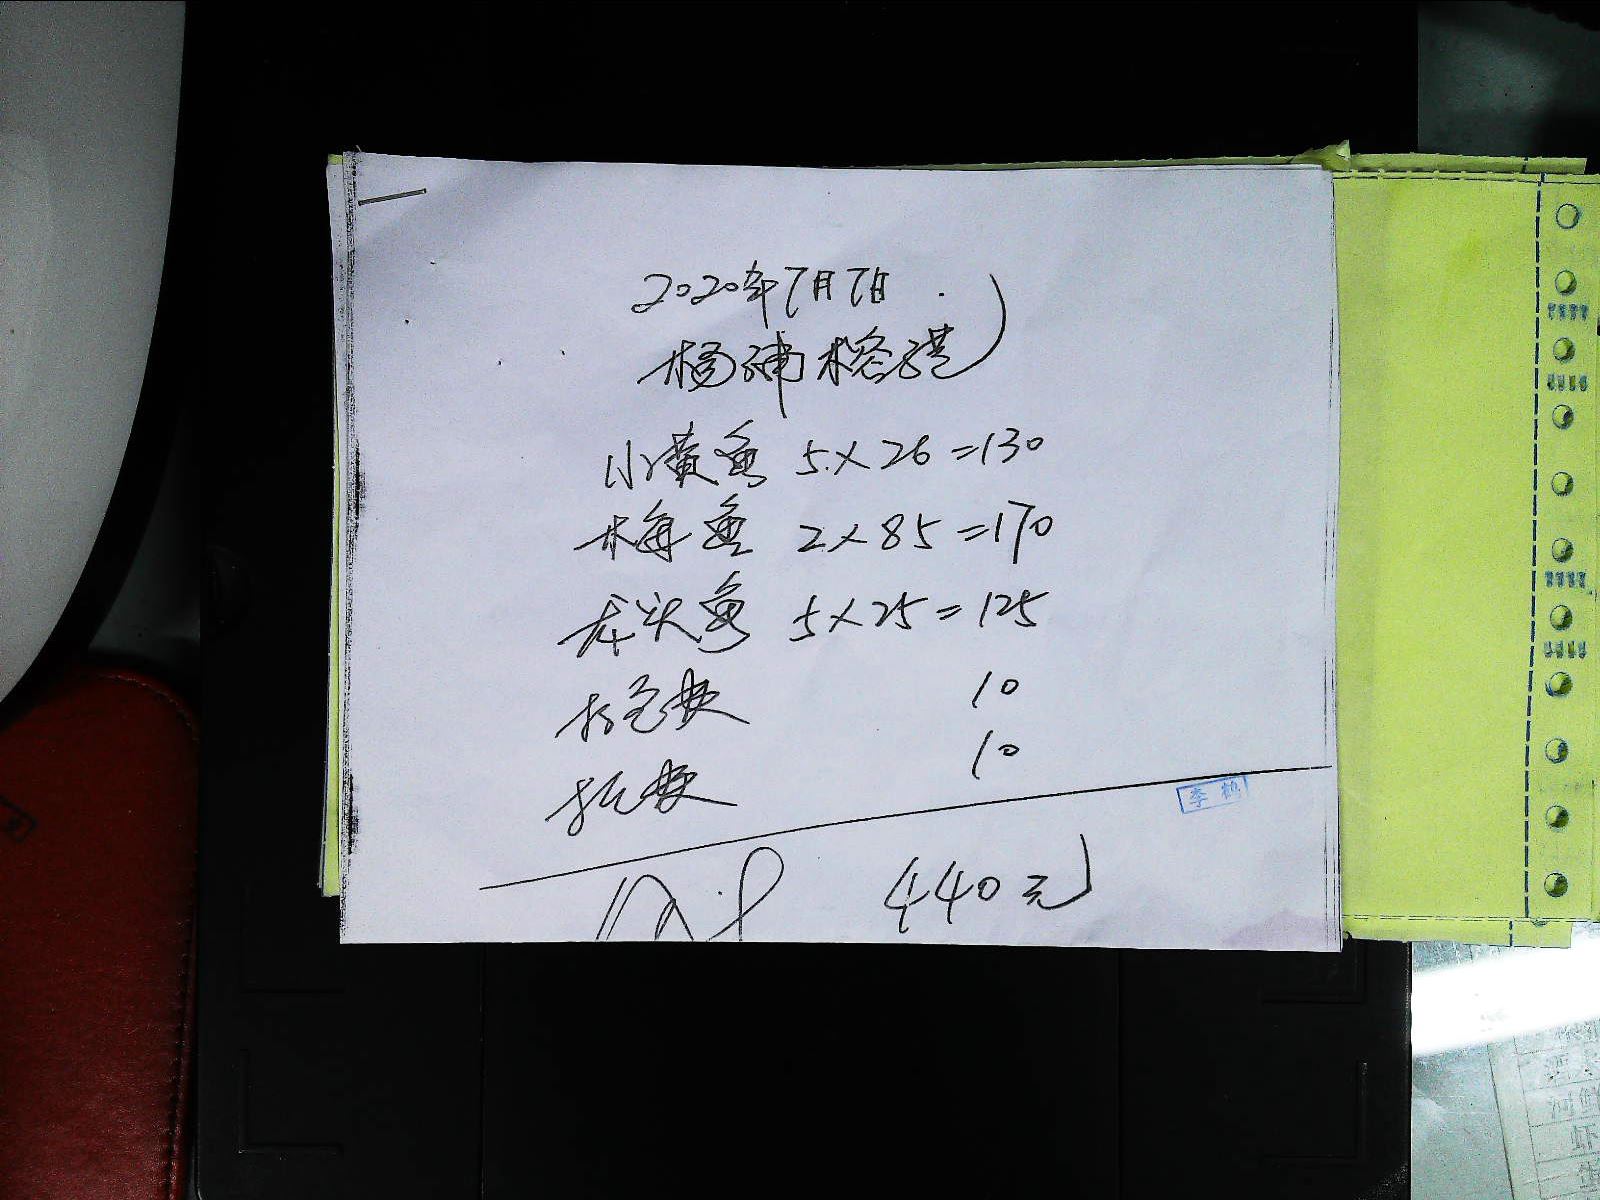 2020年7月7日
杨浦榕港
小黄鱼 5×26=130
梅鱼 2×85=170
龙头鱼 5×25=125
打包费 10
托费 10
李鹤
440元